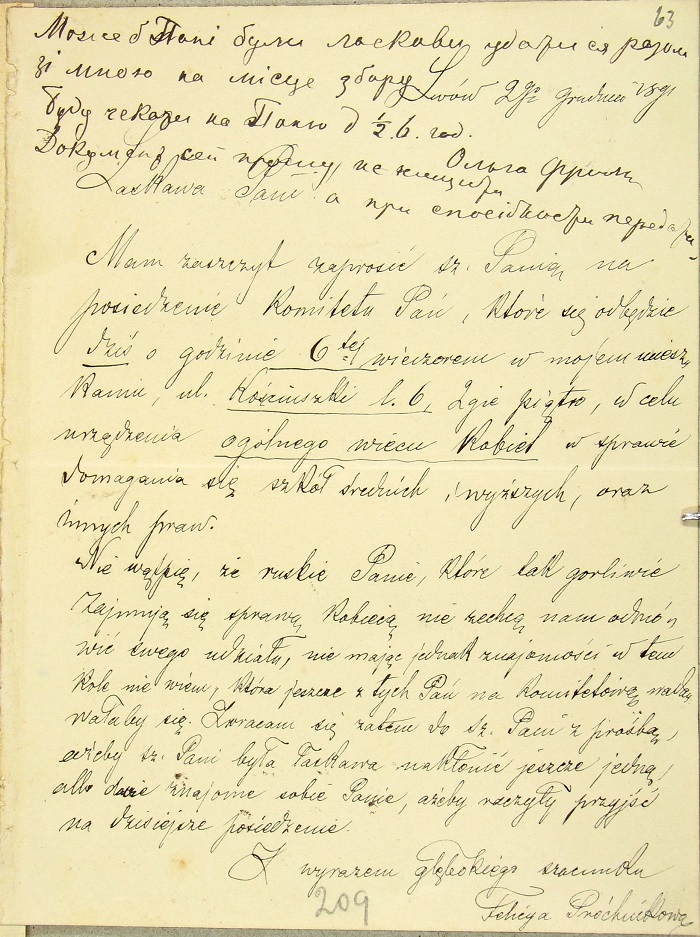 63
Може б Пані були ласкаві удатися разом
зі мною на місце збору
Lwów 29go Grudnia 1891
буду чекати на Паню о ½ 6. год.
Ольга Франко
Документ сей прошу не нищити
а при спосібности передати
Łaskawa Pani
Mam zaszczyt zaprosić sz. Panią na
posiedzenie Komitetu Pań, które się odbędzie
dziś o godzinie 6tej wieczorem w mojem miesz-
kaniu, ul. Kościuszki l. 6, 2gie piątro, w celu
urządzenia ogólnego wiecu Kobiet w sprawie
domagania się szkół średnich i wyższych, oraz
innych praw.
Nie wątpię, że ruskie Panie, które tak gorliwie
zajmują się sprawą kobiecą nie zechcą nam odmó-
wić swego udziału, nie mając jednak znajomości w tem
kole nie wiem, która jeszcze z tych Pań na komitetową nada-
wałaby się. Zwracam się zatem do sz. Pani z prośbą,
ażeby sz. Pani była łaskawa nakłonić jeszcze jedną,
albo dwie znajome sobie Panie, ażeby raczyły przyjść
na dzisiejsze posiedzenie.
Z wyrazem głębokiego szacunku
Felicya Próchnikowa
209